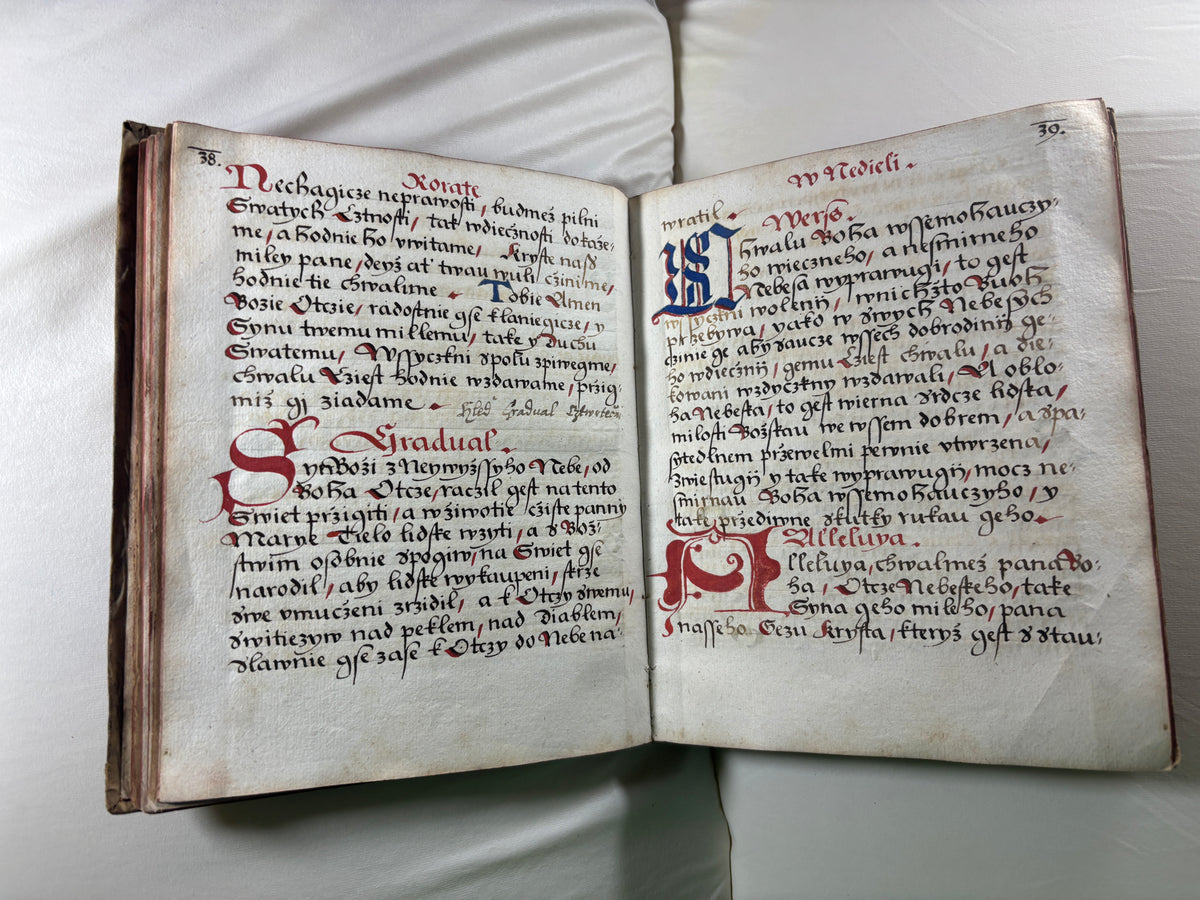 38.
Rorate
Nechagicze neprawosti, budmež pilni
Swatych Cztnosti, tak wdiecznosti dokaže-
me, a hodnie ho vwitame, Kryste nass
miley pane, deyž ať twau wuli cžinime,
hodnie tie chwalime. Tobie Amen
Bozie Otczie, radostnie gse klaniegicze, y
Synu twemu milemu, take y Duchu
Swatemu, Wssyczkni spolu zpiwegme,
chwalu Cziest hodnie wzdawame, pržig-
miž gj ziadame.
Hled Gradual Cztwrteczn
Gradual.
Syn Boži z Neywyžssyho Nebe, od
Boha Otcze, raczil gest na tento
Swiet pržigiti, a w žiwotie cžiste panny
Marye Tielo lidske wzyti, a s Bož-
stwim osobnie spogiw, na Swiet gse
narodil, aby lidske wykaupeni, skrze
swe vmuczeni zržidil, a k Otczy swemu,
switiezyw nad peklem, nad diablem,
slawnie gse zase k Otczy do Nebe na-
39.
W Nedieli.
wratil.
Wers.
Chwalu Boha wssemohauczy-
ho wieczneho, a nesmirneho
Nebesa wyprawugi, to gest
wssyczkni wolenij, w nichžto Buoh
przebywa, yako w swych Nebesych
czinie ge aby saucze wssech dobrodinij ge-
ho wdiecznij, gemu Cziest chwalu, a die-
kowani wzdyczkny wzdawali, A oblo-
ha Nebeska, to gest wierna srdcze lidska,
milosti Božskau we wssem dobrem, a spa-
sytedlnem przewelmi pewnie vtwrzena,
zwiestugij y take wyprawugij, mocz ne-
smirnau Boha wssemohauczyho, y
take przediwne skutky rukau geho.
Alleluya.
Alleluya, chwalmež pana Bo-
ha, Otcze Nebeskeho, take
Syna geho mileho, pana
nasseho Gezu Krysta, kteryž gest s stau-